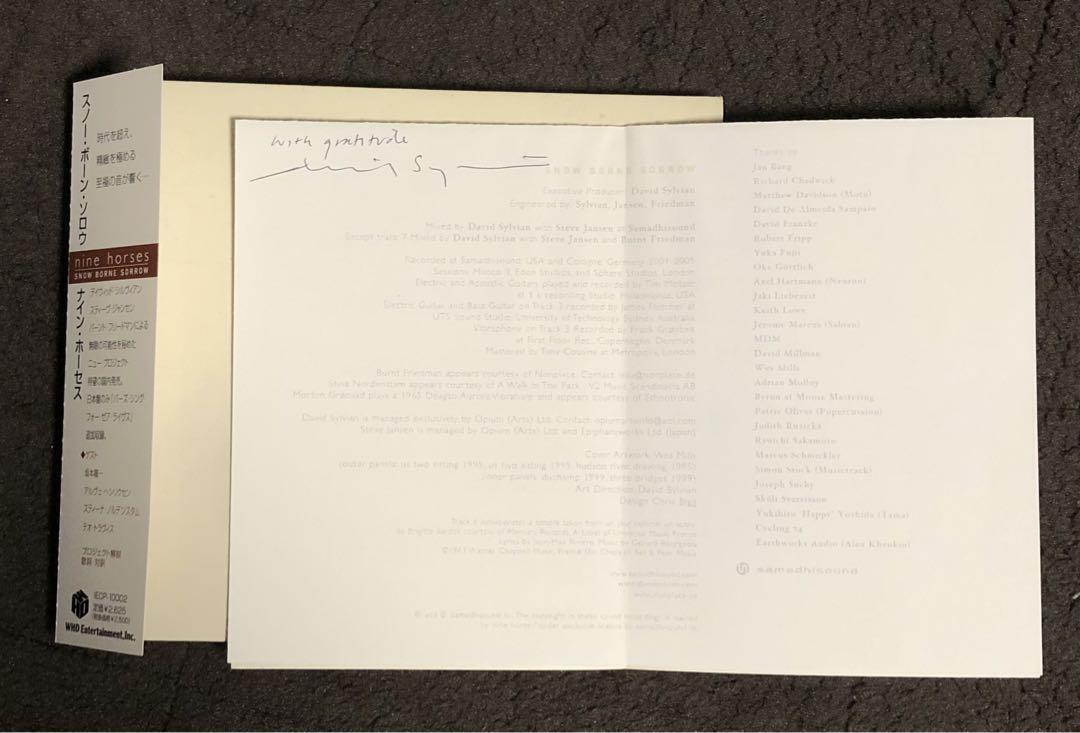 スノー・ボーン・ソロウ
時代を超え、
精意を極める
至福の音が響く…
nine horses
SNOW BORNE SORROW
ナイン・ホーセス
デイヴィッド・シルヴィアン
スティーヴ・ジャンセン
バーント・フリードマンによる
無限の可能性を秘めた
ニュー・プロジェクト
待望の国内発売。
日本盤のみ「バーズ・シング
フォー・ゼア・ライヴス」
追加収録。
◆ゲスト
坂本龍一
アルヴェ・ヘンリクセン
スティーナ・ノルデンスタム
テオ・トラヴィス
プロジェクト解説
歌詞・対訳
IECP-10002
定価¥2,625
(税抜価格¥2,500)
WHD Entertainment, Inc.
with gratitude
SNOW BORNE SORROW
Executive Producer: David Sylvian
Engineered by: Sylvian, Jansen, Friedman
Mixed by David Sylvian with Steve Jansen at Samadhisound
Except track 7 Mixed by David Sylvian with Steve Jansen and Burnt Friedman
Recorded at Samadhisound USA and Cologne Germany 2001-2005
Sessions: Mission 3, Eden Studios, and Sphere Studios, London
Electric and Acoustic Guitars played and recorded by Tim
recording Studio Philadelphia, USA
Electric Guitar and Bass Guitar on Track 3 recorded by James
UTS Sound Studio, University of Technology Sydney, Australia
Vibraphone on Track 3 Recorded by Frank
at First Floor Rec., Copenhagen, Denmark
Mastered by Tony Cousins at Metropolis, London
Burnt Friedman appears courtesy of Nonplace. Contact: info@nonplace.de
Stina Nordenstam appears courtesy of A Walk In The Park / V2 Music Scandinavia AB
Morten Grønvad plays a 1965 Deagan Aurora Vibraharp and appears courtesy of
David Sylvian is managed exclusively by Opium (Arts) Ltd. Contact: opiumarts@aol.com
Steve Jansen is managed by Opium (Arts) Ltd and Epiphanyworks Ltd (Japan)
Cover Artwork: Wes Mills
(outer panels: us two sitting 1995, us two sitting 1995, hudson river drawing, 1985)
(inner panels: duchamp, 1999, three bridges, 1999)
Art Direction: David Sylvian
Design: Chris Bigg
www.samadhisound.com
Thanks to
Jan Bang
Richard Chadwick
Matthew Davidson (Motu)
David De Almeida Sampaio
David Franzke
Robert Fripp
Yuka Fujii
Oke Göttlich
Axel Hartmann (Neuton)
Jaki Liebezeit
Keith Lowe
Jerome Marcus (Sabian)
MDM
David Millman
Wes Mills
Adrian Molloy
Byron at Moose Mastering
Patric Oliver (Popercussion)
Judith Ruzicka
Ryuichi Sakamoto
Marcus Schmickler
Simon Stock (Musictrack)
Joseph Suchy
Skúli Sverrisson
Yukihiro 'Happy' Yoshida (Tama)
Cycling 74
Earthworks Audio (Alex Khenkin)
samadhisound